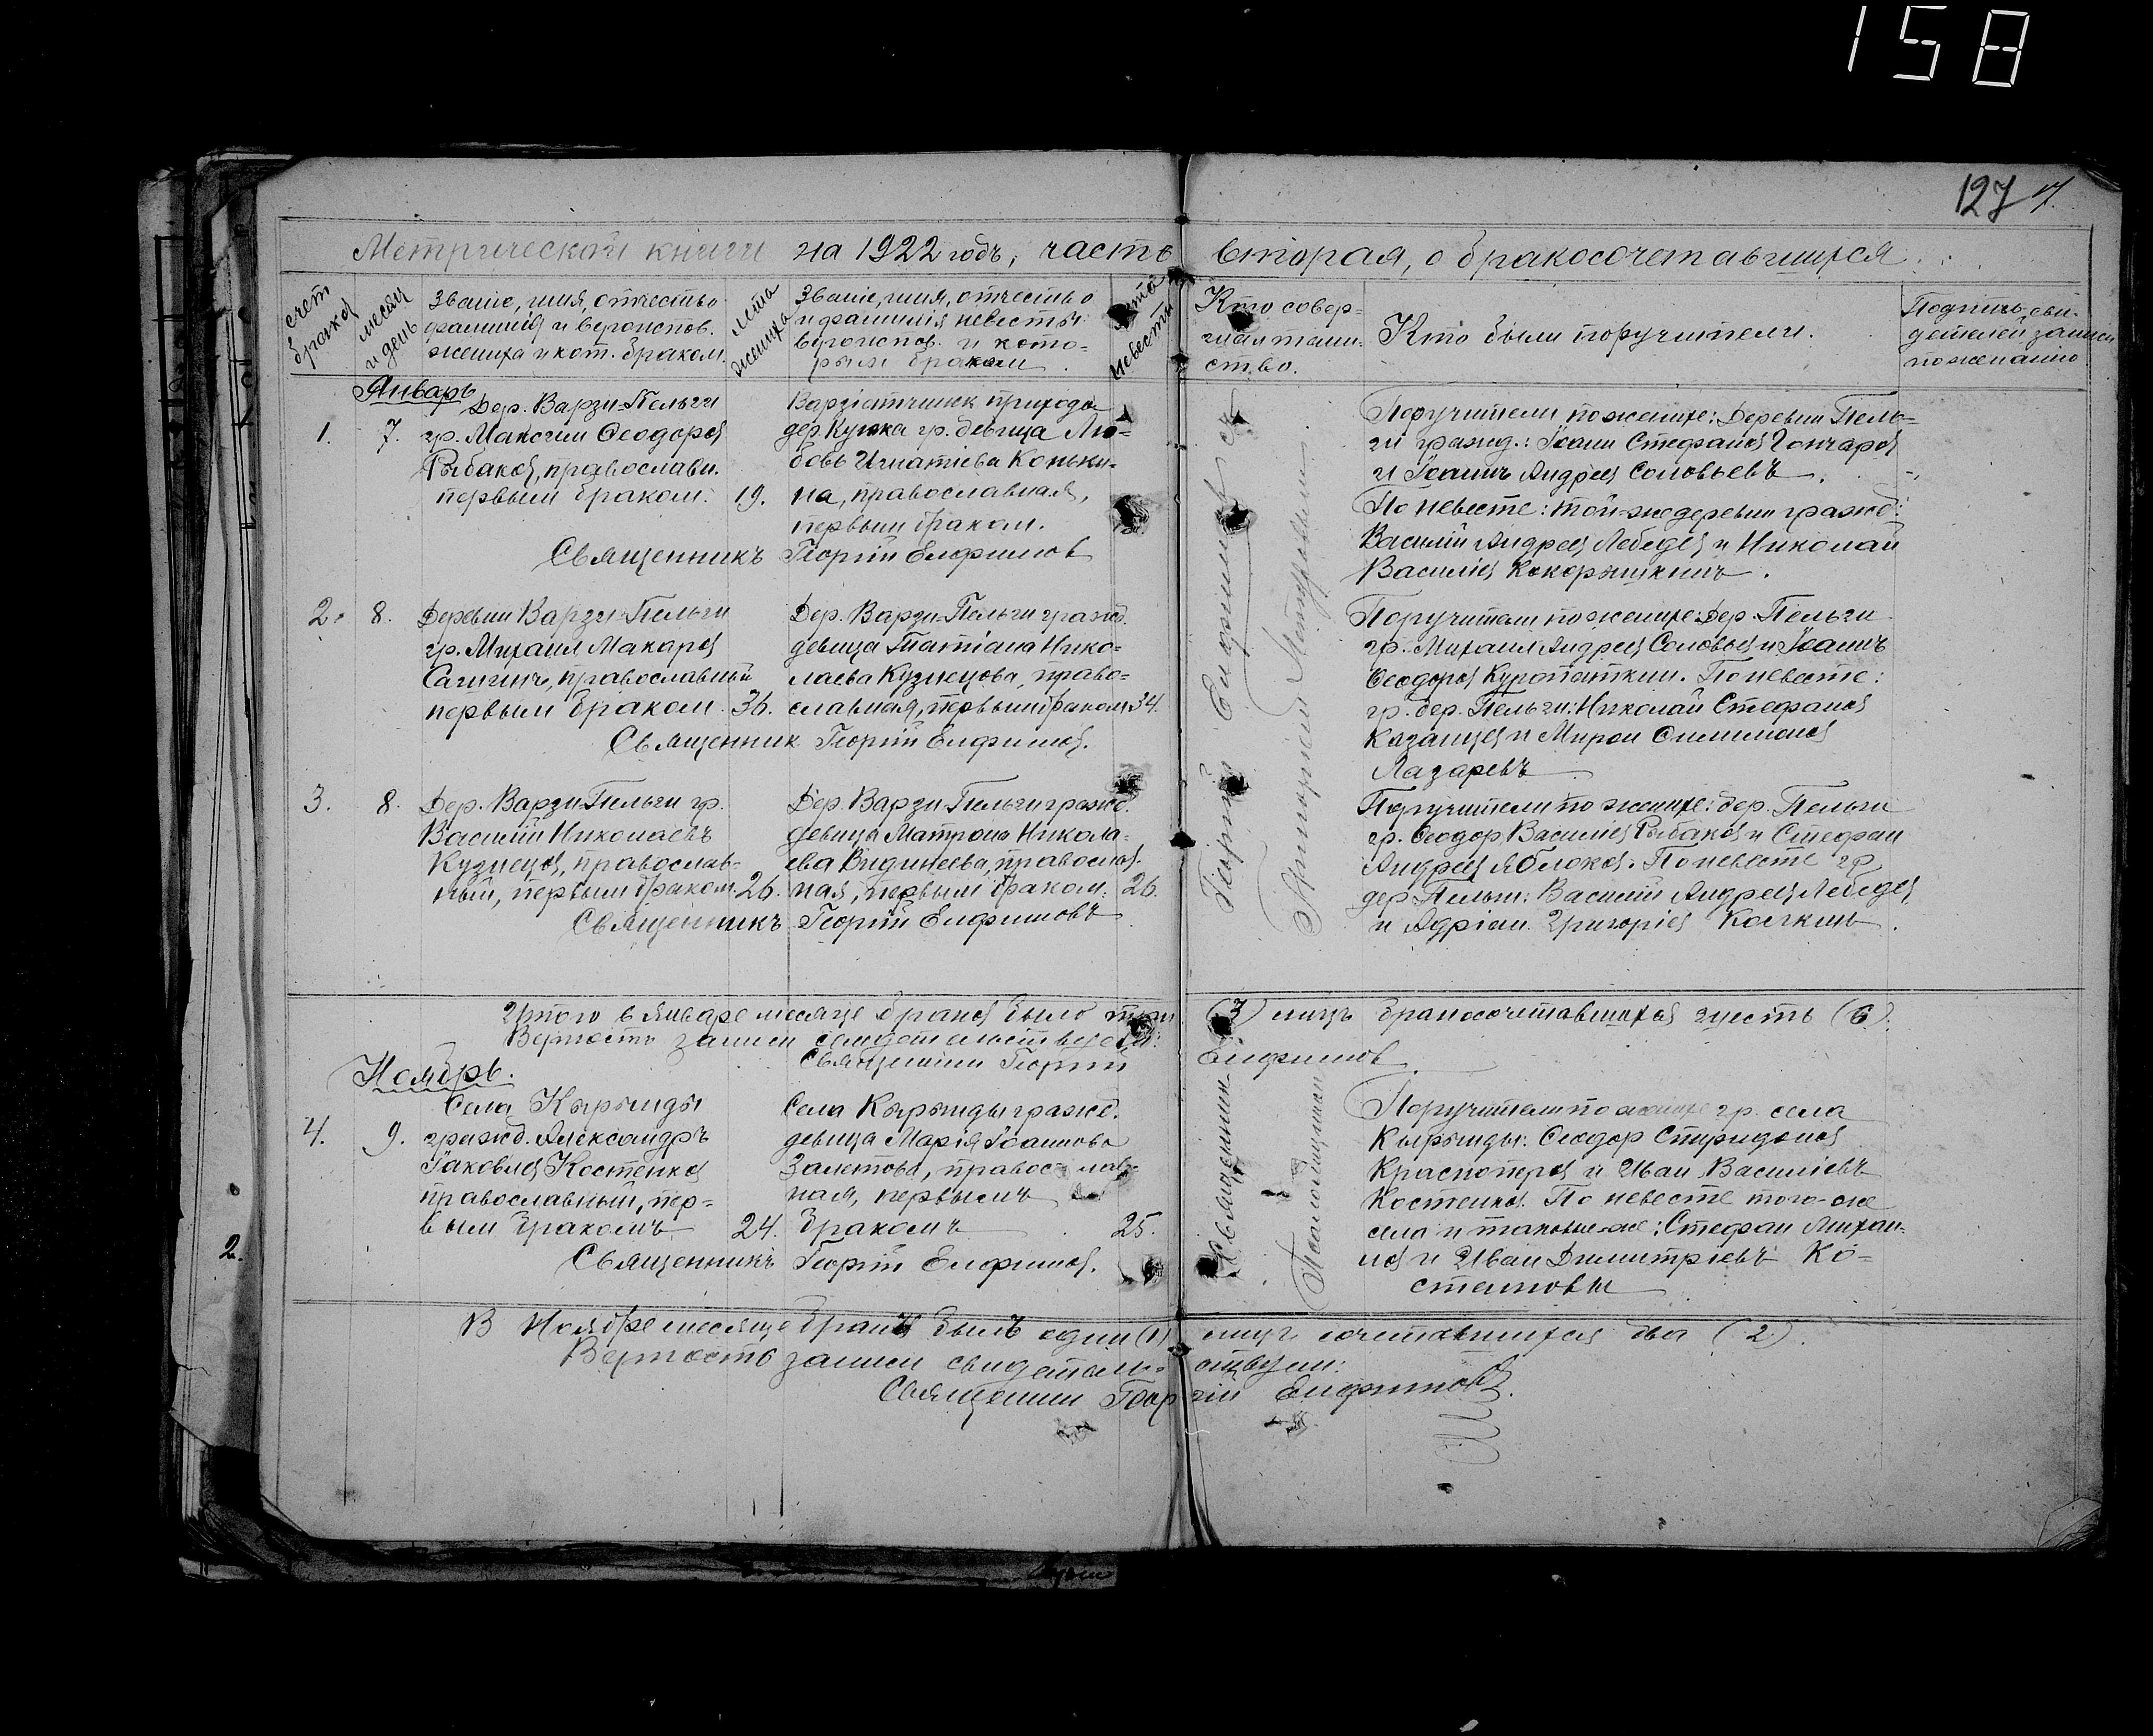 158
127
Метрической книги на 1922 годъ, часть вторая, о бракосочетавшихся.
счет браков
месяц и день
Званіе, имя, отчество
фамилія и вероиспов.
жениха и кот. браком.
Лета жениха
Званіе, имя, отчество
и фамилія невесты
вероиспов. и кото-
рым браком.
Лета невесты
Кто совер-
шал таин-
ство.
Кто были поручители.
Подпись сви-
детелей записи
по желанію
Январь
1. 7.
Дер. Варзи-Пельги
гр. Максим Ѳеодоров
Рыбаков, православн.
первым браком. 19.
Варзіятчинск прихода
дер. гр. девица Лю-
бовь Игнатіева Коньки-
на, православная,
первым браком.
Священникъ Георгій Елфимов
Поручители по женихе: Деревни Пель-
ги гражд.: Іоанн Стефанов Гончаров
и Іоаннъ Андреев Соловьевъ.
По невесте: той-же деревни гражд:
Василий Андреев Лебедев и Николай
Василіев Кокоржицкинъ.
2. 8.
Деревни Варзи-Пельги
гр. Михаил Макаров
православный
первым браком. 36.
Дер. Варзи-Пельги гражд.
девица Татіана Нико-
лаева Кузнецова, право-
славная, первым браком 34.
Священник Георгій Елфимов.
Поручители по женихе: Дер. Пельги
гр. Михаил Андреев Соловьев и Іоаннъ
Ѳеодоров Куропаткин. По невесте:
гр. дер. Пельги: Николай Стефанов
Казанцев и Мирон
Лазаревъ
3. 8.
Дер. Варзи-Пельги гр.
Василій Николаевъ
Кузнецов, православ-
ный, первым браком. 26.
Дер. Варзи-Пельги гражд.
девица Матрона Никола-
ева православ.
ная, первым браком. 26.
Священникъ Георгій Елфимовъ
Поручители по женихе: дер. Пельги
гр. Ѳеодор Василіев Рыбаков и Стефан
Андреев Яблоков. По невесте гр.
дер. Пельги: Василій Андреев Лебедев
и Адріан Григоріев
Священник Георгій Елфимов
Псаломщик Григорій
Итого в Январе месяце браков было три (3) лицъ бракосочетавшихся шесть (6).
Верность записи свидетельствую:
Священник Георгій Елфимов
Ноябрь.
4. 9.
Села Кырынды
гражд. Александръ
Іаковлев Костенков
православный, пер-
вым бракомъ 24.
Села Кырынды гражд.
девица Марія Іоаннова
Залетова, православ-
ная, первымъ
бракомъ 25.
Священникъ Георгій Елфимов.
Поручители по женихе гр. села
Кырынды: Ѳеодор Спиридонов
Красноперов и Иван Василіевъ
Костенков. По невесте того-же
села и таковые-же: Стефан Михаи-
лов и Иван Димитріевъ Ко-
2.
В Ноябре месяце браков былъ один (1) лицъ сочетавшихся два (2).
Верность записи свидетельствую:
Священник Георгій Елфимовъ.